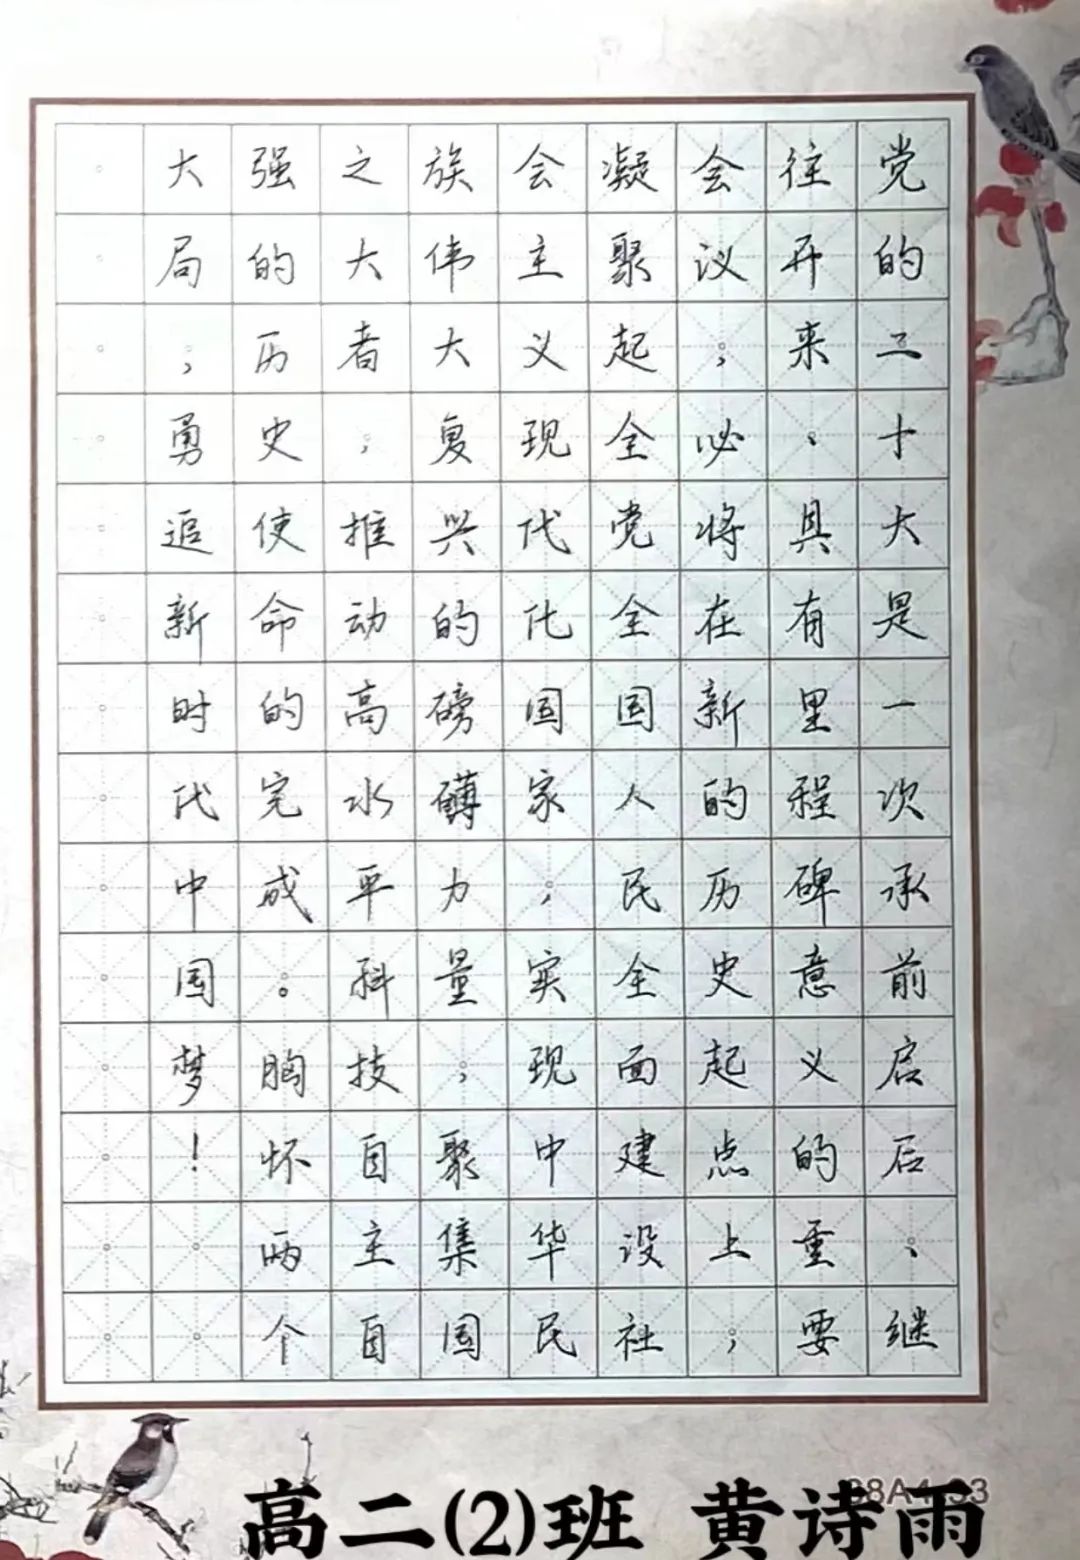 党的二十大是一次承前启后、继
往开来、具有里程碑意义的重要
会议，必将在新的历史起点上，
凝聚起全党全国人民全面建设社
会主义现代化国家，实现中华民
族伟大复兴的磅礴力量，聚集国
之大者，推动高水平科技自主自
强的历史使命的完成。胸怀两个
大局，勇追新时代中国梦！
高二(2)班 黄诗雨